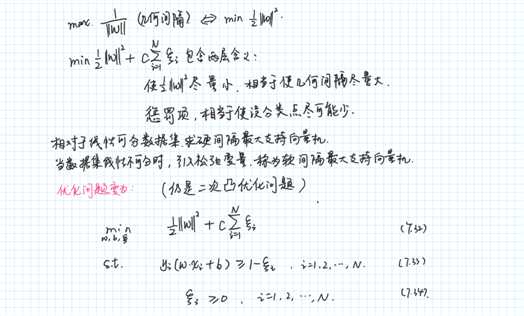 max. 1/||w|| (几何间隔) ⇔ min ½||w||².
min ½||w||² + C∑_{i=1}^{N} ξi 包含两层含义:
使½||w||²尽量小,相当于使几何间隔尽量大.
惩罚项,相当于使误分类点尽可能少.
相对于线性可分数据集求硬间隔最大支持向量机.
当数据集线性不可分时,引入松弛变量,称为软间隔最大支持向量机.
优化问题变为: (仍是二次凸优化问题)
min_{w,b,ξ} ½||w||² + C∑_{i=1}^{N} ξi (7.32)
s.t. yi(w·xi+b) ≥ 1-ξi , i=1,2,⋯,N. (7.33)
ξi ≥0 , i=1,2,⋯,N. (7.34).